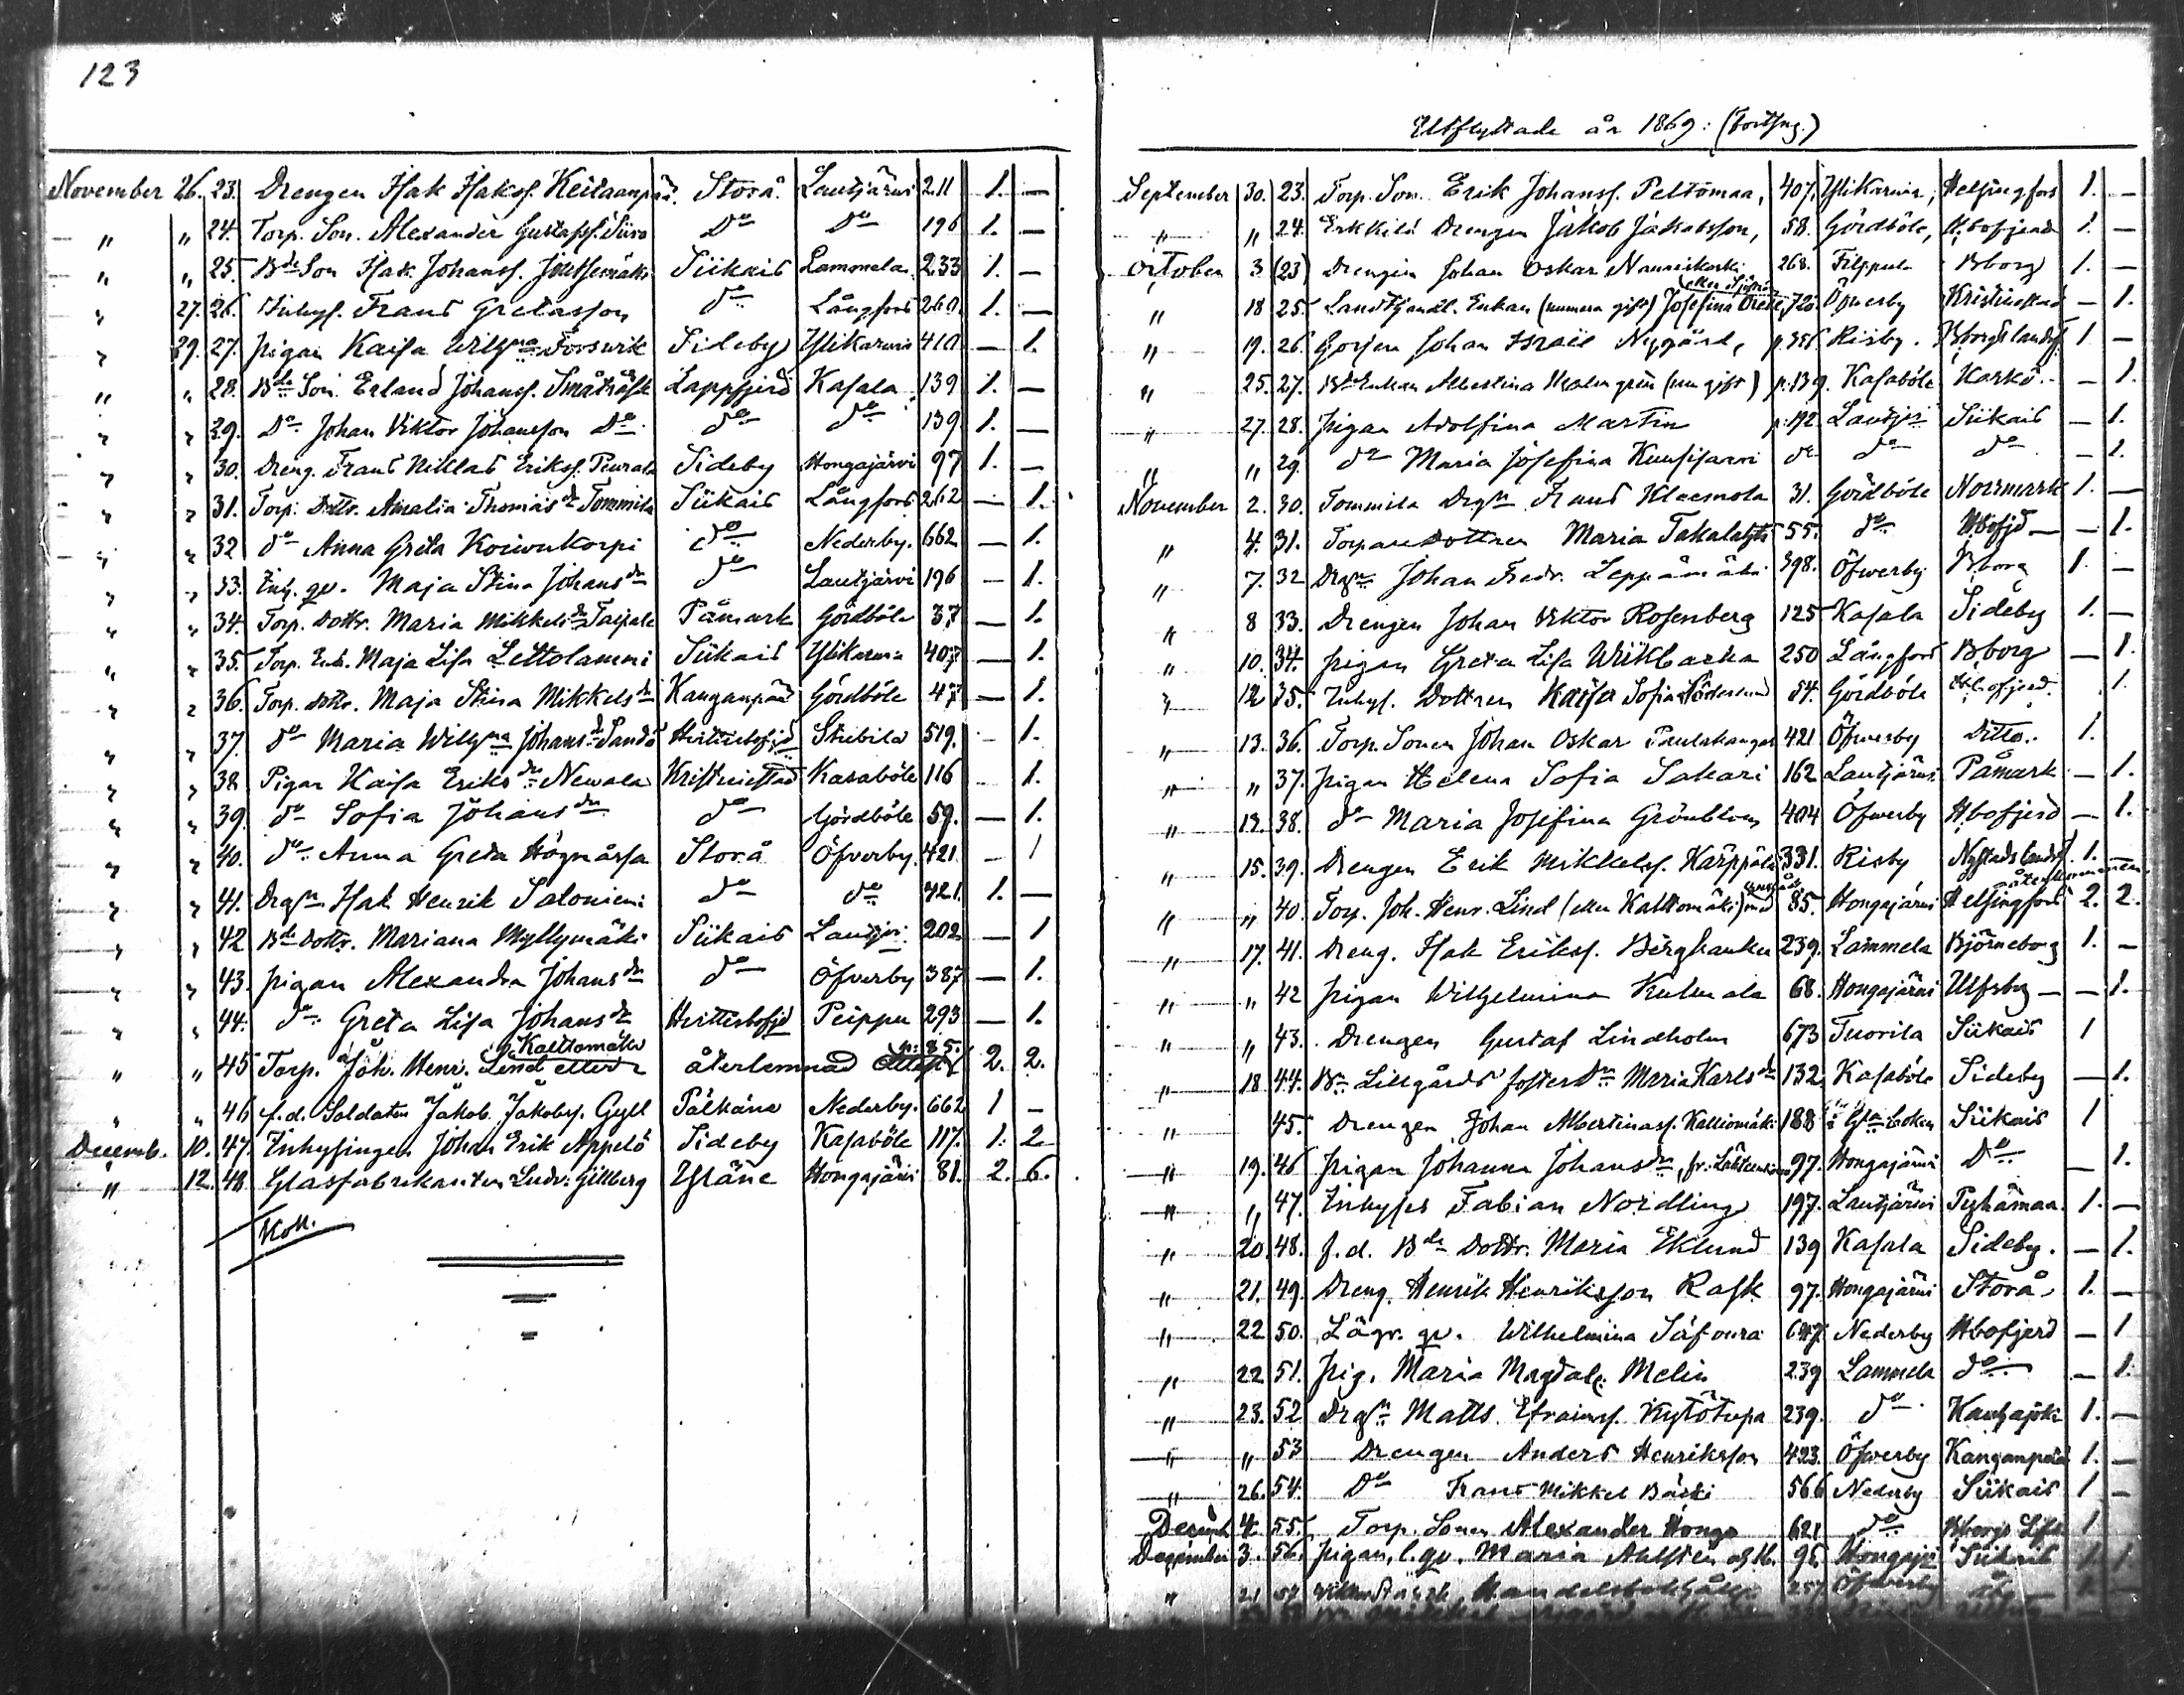 123
November 26. 23. Drengen Isak Isakss. Keitaanpää. Storå. Lautjärvi 211 1. —
" " 24. Torp. Son. Alexander Gustafss. Siiro Do Do 196 1. —
" " 25. Bde Son Isak Johanss. Siikais Lammela 233 1. —
" 27. 26. Inhys. Frans Gretasson do Långfors 260 1. —
" 29. 27. pigan Kaisa Wilhna Forswik Sideby Ylikarvia 410 — 1.
" " 28. Bde Son. Erland Johanss. Småträsk Lappfjerd Kasala 139 1. —
" " 29. Do Johan Viktor Johansson Do do do 139 1. —
" " 30. Dreng. Frans Niklas Erikss. Peurala Sideby Hongajärvi 97 1. —
" " 31. Torp. Dottr. Amalia Thomasdr Tommila Siikais Långfors 262 — 1.
" " 32 do Anna Greta Koiwukorpi do Nederby. 662 — 1.
" " 33. Inh. qv. Maja Stina Johansdr do Lautjärvi 196 — 1.
" " 34. Torp. Dottr. Maria Mikkelsdr Taipale Påmark Gördböle 37 — 1.
" " 35. Torp. Enk. Maja Lisa Lettolammi Siikais Ylikarvia 407 — 1.
" " 36. Torp. dottr. Maja Stina Mikkelsdr Kanganpää Gördböle 47 — 1.
" " 37. do Maria Wilhna Johansdr Sandö Hvittisbofjd Stribila 519. — 1.
" " 38 Pigan Kaisa Eriksdr Newala Kristinestad Kasaböle 116 — 1.
" " 39. do Sofia Johansdr do Gördböle 59. — 1.
" " 40. do Anna Greta Högnåssa Storå Öfverby. 421 — 1
" " 41. Drgn Isak Henrik Salonieni do do 421. 1. —
" " 42 Bde Dottr. Mariana Myllymäki Siikais Lautjvi 202 — 1
" " 43. pigan Alexandra Johansdr do Öfverby 387 — 1.
" " 44. do Greta Lisa Johansdr Hvittisbofjd Peippu 293 — 1.
Kalttomäki p: 85.
" " 45 Torp. Joh. Henr. Lind eller återlemnad attest 2. 2.
" " 46 f.d. Soldaten Jakob Jakobss. Gyll Pälkäne Nederby. 662 1 —
Decemb. 10. 47. Inhysingen Johan Erik Appelö Sideby Kasaböle 117. 1. 2
" 12. 48. Glasfabrikanten Ludv: Gillberg Yläne Hongajärvi 81. 2. 6.
Koll.
Utflyttade år 1869: (fortsng.)
September 30. 23. Torp. Son. Erik Johanss. Peltomaa, 407. Ylikarvia, Helsingfors 1. —
" " 24. Erkkilä Drengen Jakob Jakobsson, 58. Gördböle, Hbofjerd 1. —
October 3 (23) Drengen Johan Oskar 268. Filppula Bborg 1. —
" 18 25. Landtjendl. Enkan (numera gift) Josefina 720. Öfverby Kristinestad — 1.
" 19. 26 Gossen Johan Israel Nygård, p. 356 Risby. Bborgs landsf. 1 —
" 25. 27. Bde Enkan Albertina Malmgren (nu gift) p. 139. Kasaböle Karkö. — 1.
" 27. 28. pigan Adolfina Martin p. 192 Lautjvi Siikais — 1.
" " 29. do Maria Josefina Kuusijarvi do do do — 1.
November 2. 30. Tommila Drgn Frans Klaesnola 31. Gördböle Norrmark 1. —
" 4. 31. Torparedottren Maria Takalahti 55. do Hbofjd — — 1.
" 7. 32 Drgn Johan Fredr. Leppämäki 398. Öfwerby Bborg 1. —
" 8 33. Drengen Johan Viktor Rosenberg 125 Kasala Sideby 1. —
" 10. 34. pigan Greta Lisa Wiikbacka 250 Långfors Bborg — 1.
" 12 35. Inhys. Dottren Kaisa Sofia Söderlund 54. Gördböle Hbofjerd. 1.
" 13. 36. Torp. Sonen Johan Oskar Paulakangas 421 Öfwerby Ditto. 1.
" " 37. pigan Helena Sofia Sakari 162 Lautjärvi Påmark — 1.
" 13. 38. do Maria Josefina Grönblom 404 Öfwerby Hbofjerd — 1.
" 15. 39. Drengen Erik Mikkelss. Karppola 331. Risby Nystads landsf. 1. —
återkommen.
" " 40. Torp. Joh. Henr. Lind (eller Kalttomäki) med 85. Hongajärvi Helsingfors 2. 2.
" 17. 41. Dreng. Isak Erikss. Berghanka 239. Lammela Björneborg 1. —
" " 42 pigan Wilhelmina Kulmala 68. Hongajärvi Ulfsby — — 1.
" " 43. Drengen Gustaf Lindholm 673 Tuorila Siikais 1
" 18 44. Bn Lillgårds fosterdn Maria Karlsdr 132. Kasaböle Sideby — 1.
" 45. Drengen Johan Albertinass. Kalliomäki 188 i Gla boken Siikais 1
" 19. 46 pigan Johanna Johansdr, fr. 97. Hongajärvi Do — 1.
" " 47. Inhyses Fabian Nordling 197. Lautjärvi Pyhämaa. 1. —
" 20. 48. f.d. Bde Dottr. Maria Eklund 139 Kasala Sideby. — 1.
" 21. 49. Dreng. Henrik Henriksson Rask 97. Hongajärvi Storå 1. —
" 22 50. Lägr. qv. Wilhelmina Säfvura 647 Nederby Hbofjerd — 1
" 22 51. Pig. Maria Magdal. Melin 239 Lammela do — 1.
" 23. 52 Drgn Matts Efraimss. Kytötupa 239. do Kauhajoki 1. —
" " 53 Drengen Anders Henriksson 423. Öfwerby Kanganpää 1. —
" 26. 54. Do Frans Mikkel Båski 566 Nederby Siikais 1 —
Decemb 4. 55. Torp. Sonen Alexander Honga 621 do Bborgs Lfs. 1
December 3. 56. pigan, l. qv. Maria Ahlsten 95. Hongajvi Siikais 1 1
" 21 57. 257. Öfwerby